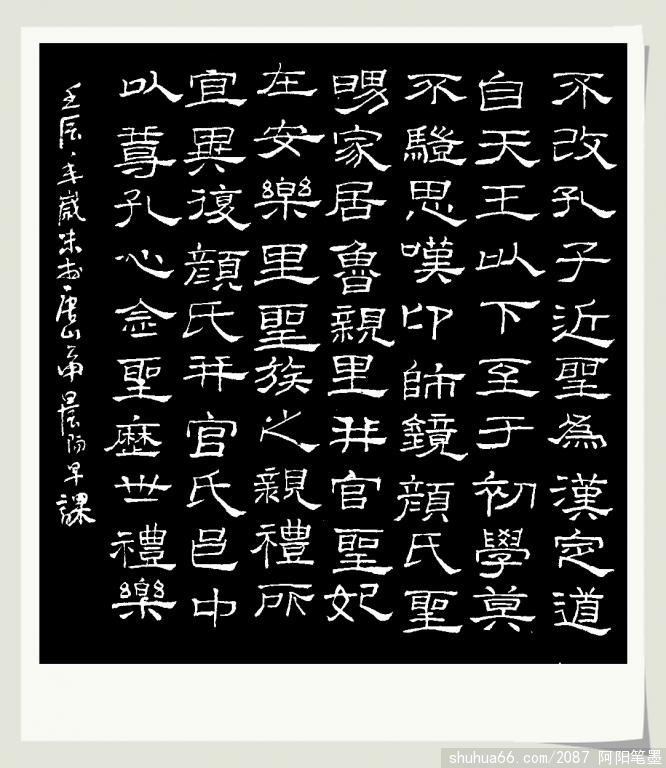 不改孔子近聖為漢定道
自天王以下至于初學莫
不驥思嘆卬師鏡顏氏聖
舅家居魯親里并官聖妃
在安樂里聖族之親禮所
宜異復顏氏并官氏邑中
以尊孔心念聖歷世禮樂
壬辰年歲末於唐山
晨
早課
shuhua66.com/2087 阿阳笔墨